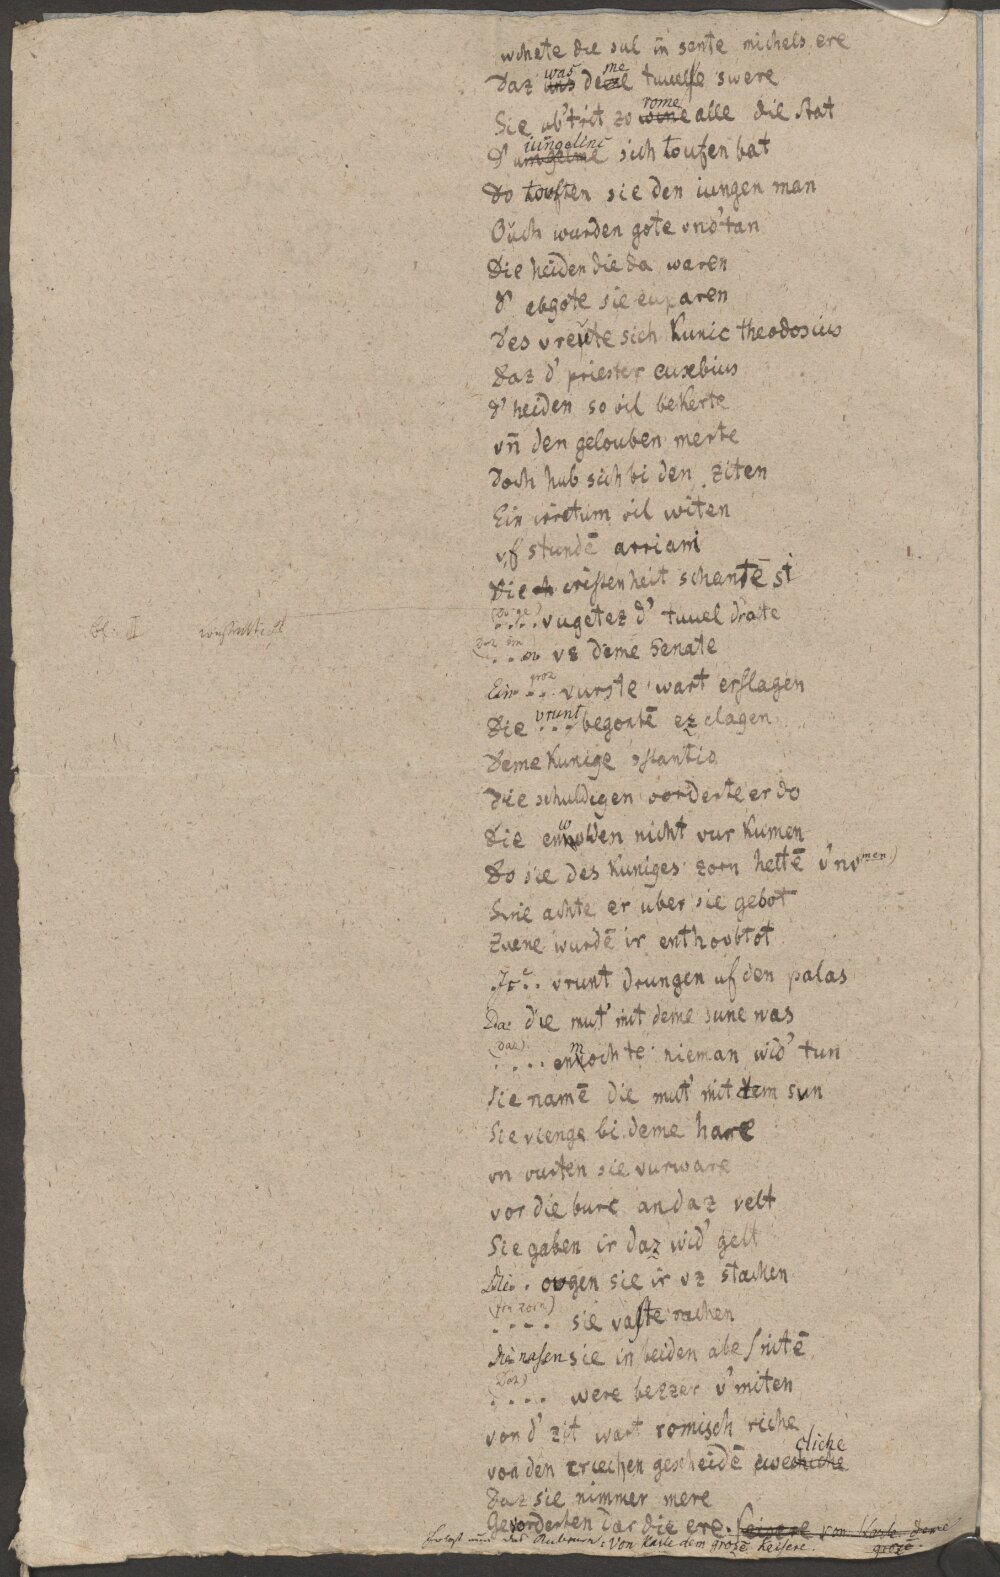 wihete die sul in sente michels ere
Daz was deme tuuele swere
Sie ub'trit zo rome alle die stat
d' iungelinc sich toufen bat
Do touften sie den iungen man
Ouch wurden gote vnd'tan
Die heiden die da waren
d' abgote sie enparen
Des vreute sich Kunic theodosius
Daz d' priester eusebius
d' heiden so vil bekerte
vn̄ den gelouben merte
Doch hub sich bi den ziten
Ein irretum vil witen
vf stundē arriani
Die cristenheit schantē si
.... vugetez d' tuuel drate
... vz deme Senate
Ein groz vurste wart erslagen
Die vrunt begontē ez clagen
Deme Kunige
Die schuldigen vorderte er do
Die enwolden nicht vur kumen
Do sie des Kuniges zorn hettē v'nomen)
Sine achte er uber sie gebot
Zwene wurdē ir enthovbtot
Ir.. vrunt drungen uf den palas
Da die mut' mit deme sune was
(daz)
.... enmochte nieman wid' tun
Sie namē die mut' mit dem sun
Sie vienge bi deme hare
vn vurten sie vurware
vor die burc an daz velt
Sie gaben ir daz wid' gelt
Die . ougen sie ir vz stachen
(irn zorn)
.... sie vaste rachen
die nasen sie in beiden abe snitē
(Daz)
.... were bezzer v'miten
von d' zit wart romisch riche
von den criechen gescheidē ewecliche
Daz sie nimmer mere
Gevorderten dar die ere. von Karle deme groze.
Von Karle dem grozē Keisere.
Bl. II